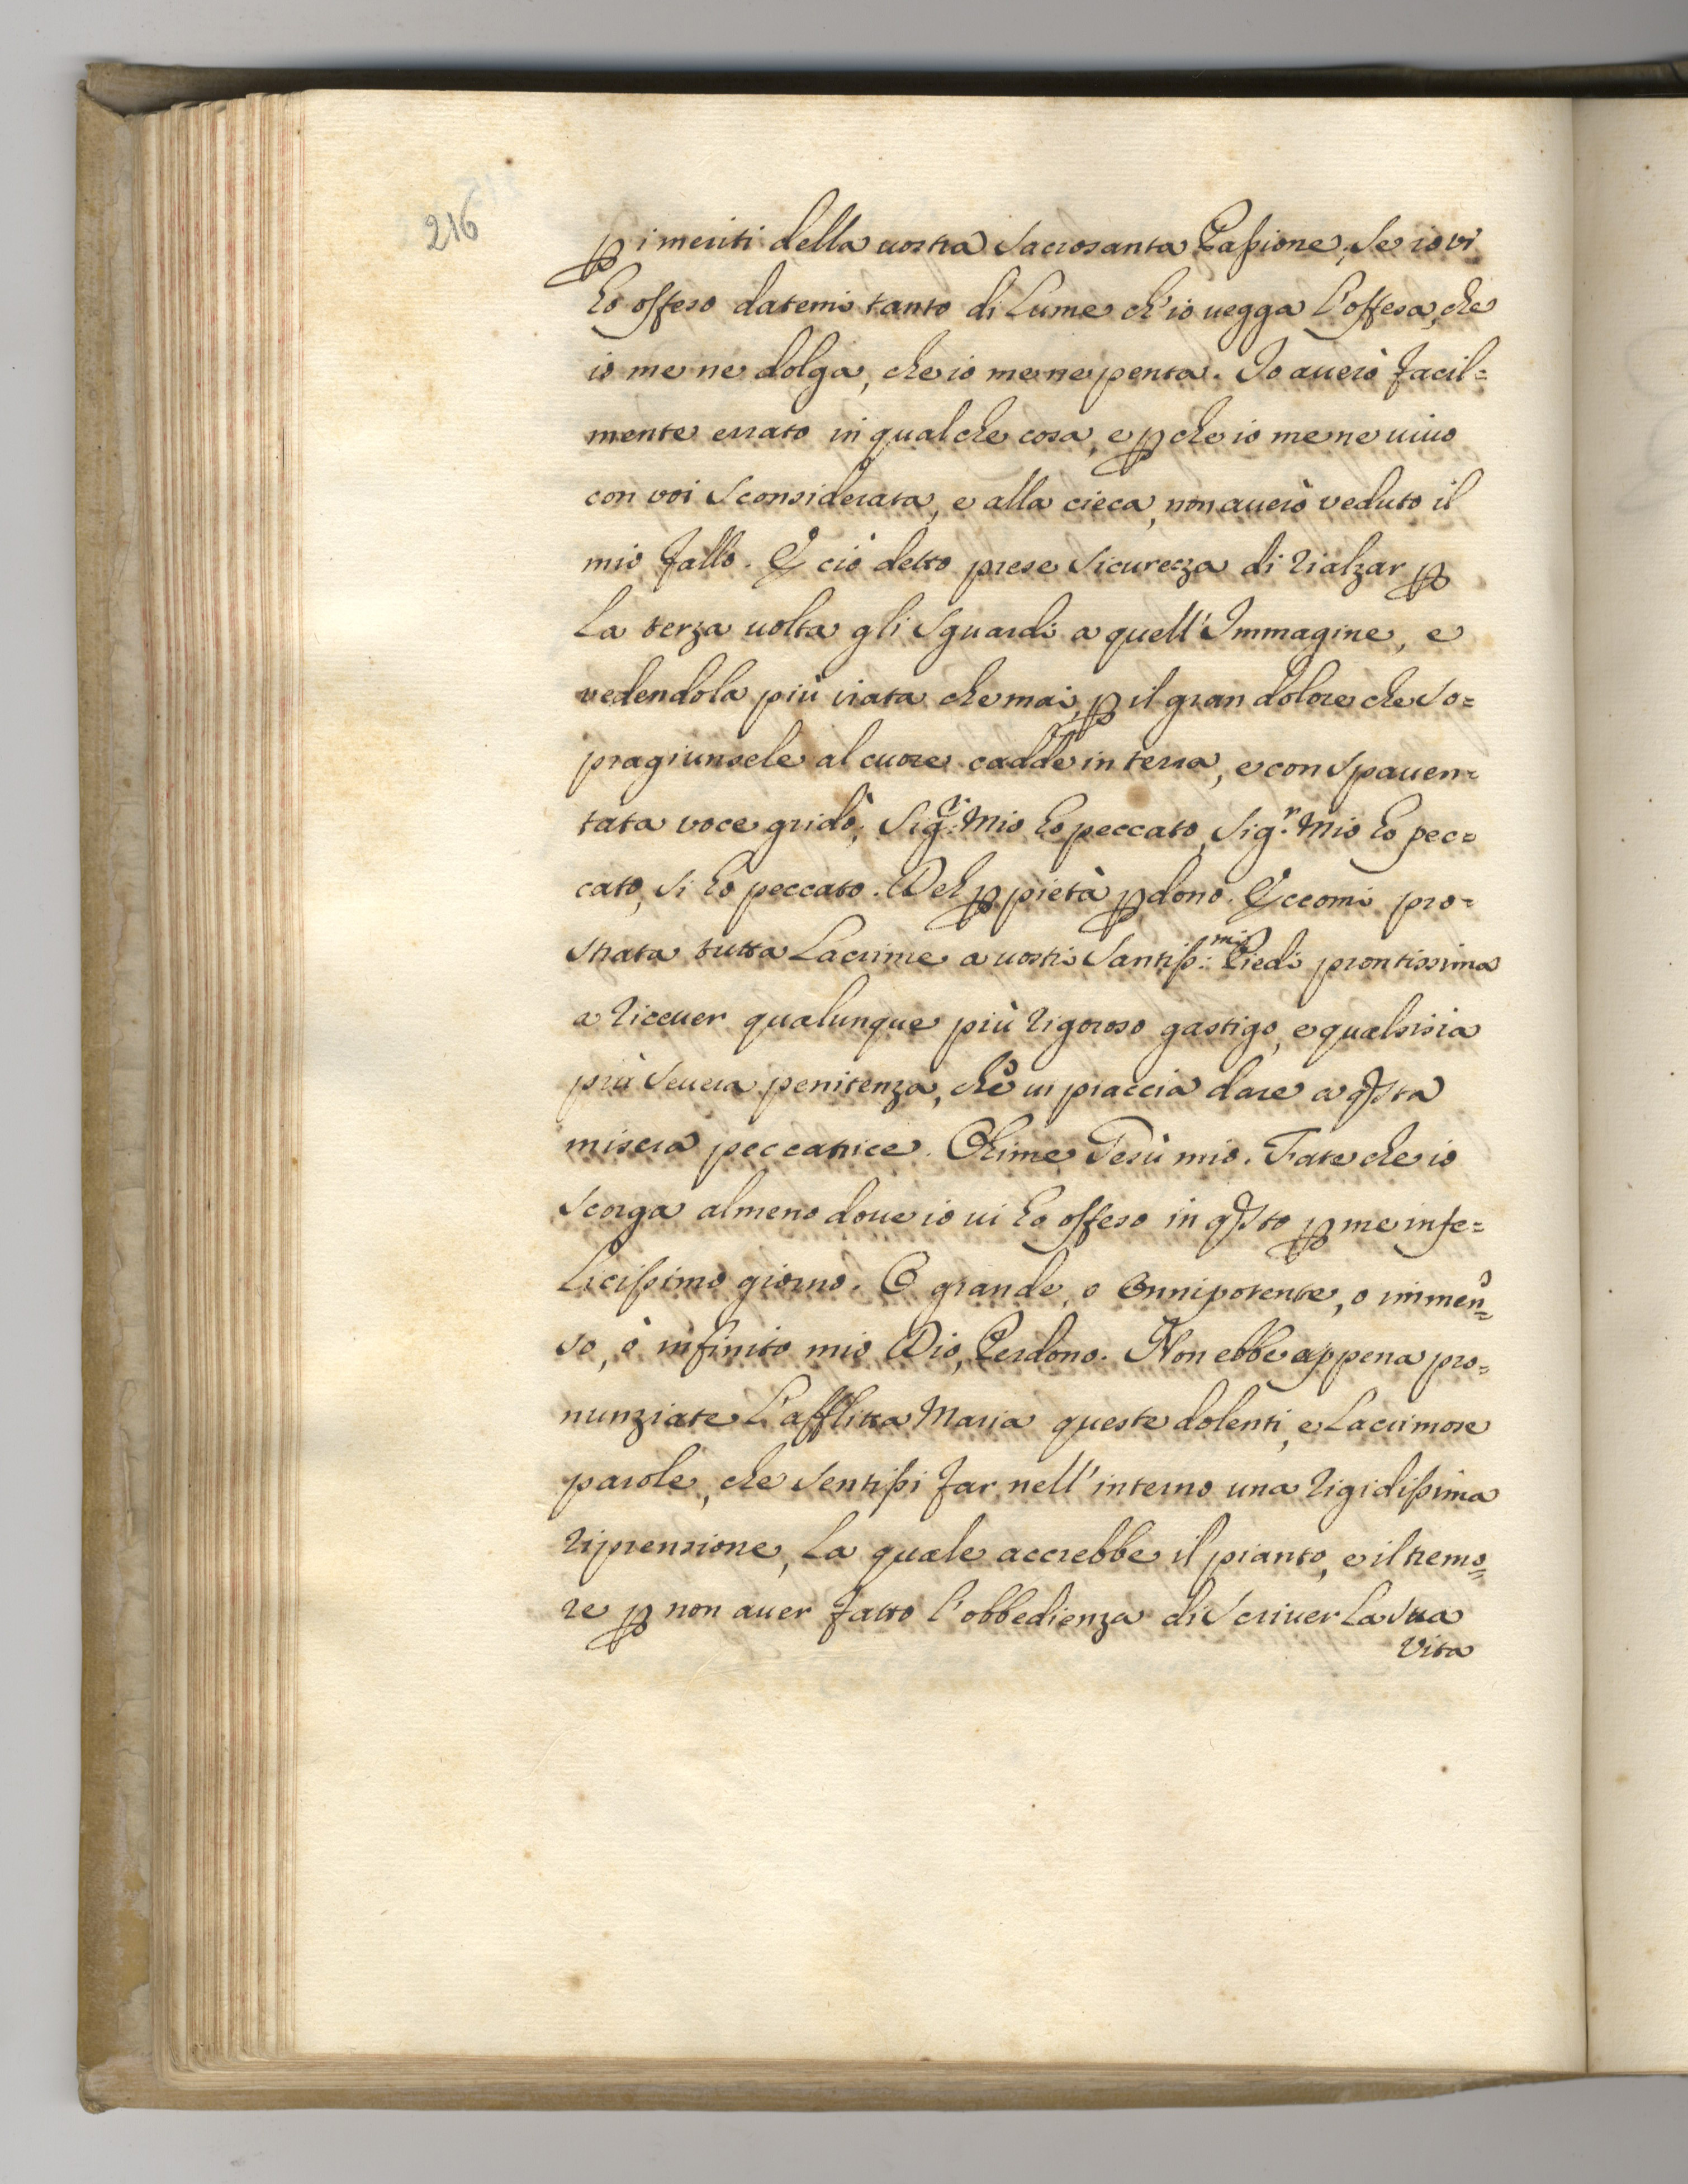 216
ꝑ i meriti della uostra Sacrosanta Passione, se io vi
ho offeso datemi tanto di Lume ch'io uegga l'offesa, che
io me ne dolga, che io me ne penta. Io auerò facil=
mente errato in qualche cosa, e ꝑche io me ne uiuo
con voi Sconsiderata, e alla cieca, non auerò veduto il
mio fallo. E ciò detto prese Sicurezza di rialzar ꝑ
La terza uolta gli Sguardi a quell'Immagine, e
vedendola più irata che mai, ꝑ il gran dolore che So=
pragiunsele al cuore cadde in terra, e con Spauen=
tata voce gridò; Sig.r Mio ho peccato, Sig.r Mio ho pec=
cato, Si ho peccato. Deh ꝑ pietà ꝑdono. Eccomi pro=
strata tutta Lacrime a uostri Santiss:mi Piedi prontissima
a riceuer qualunque più rigoroso gastigo, e qualsisia
più Seuera penitenza, che ui piaccia dare a qsta
misera peccatrice. Ohime Gesù mio. Fate che io
Scorga almeno doue io ui ho offeso in qsto ꝑ me infe=
Licissimo giorno. O grande, o Onnipotente, o immen=
so, o infinito mio Dio, Perdono. Non ebbe appena pro=
nunziate L'afflitta Maria queste dolenti, e Lacrimose
parole, che Sentissi far nell'interno una rigidissima
riprensione, La quale accrebbe il pianto, e il tremo=
re ꝑ non auer fatto l'obbedienza di Scriuer La Sua
Vita